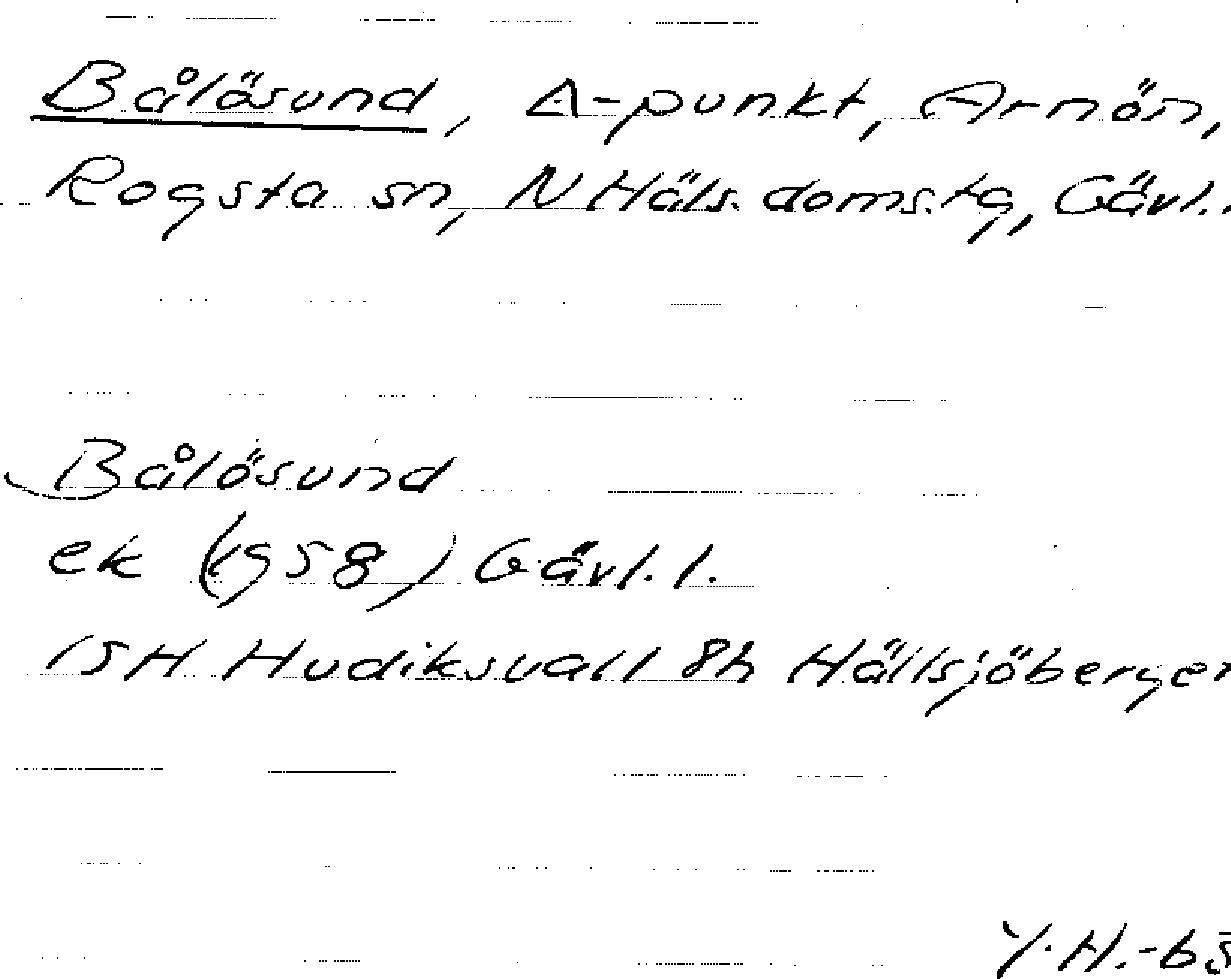 Bålösund, Δ-punkt, Arnön,
Rogsta sn, N Häls. doms.tg, Gävl.
Bålösund
ek (1958) Gävl. l.
15H Hudiksvall 8h Hällsjöberget
Y.H.-65